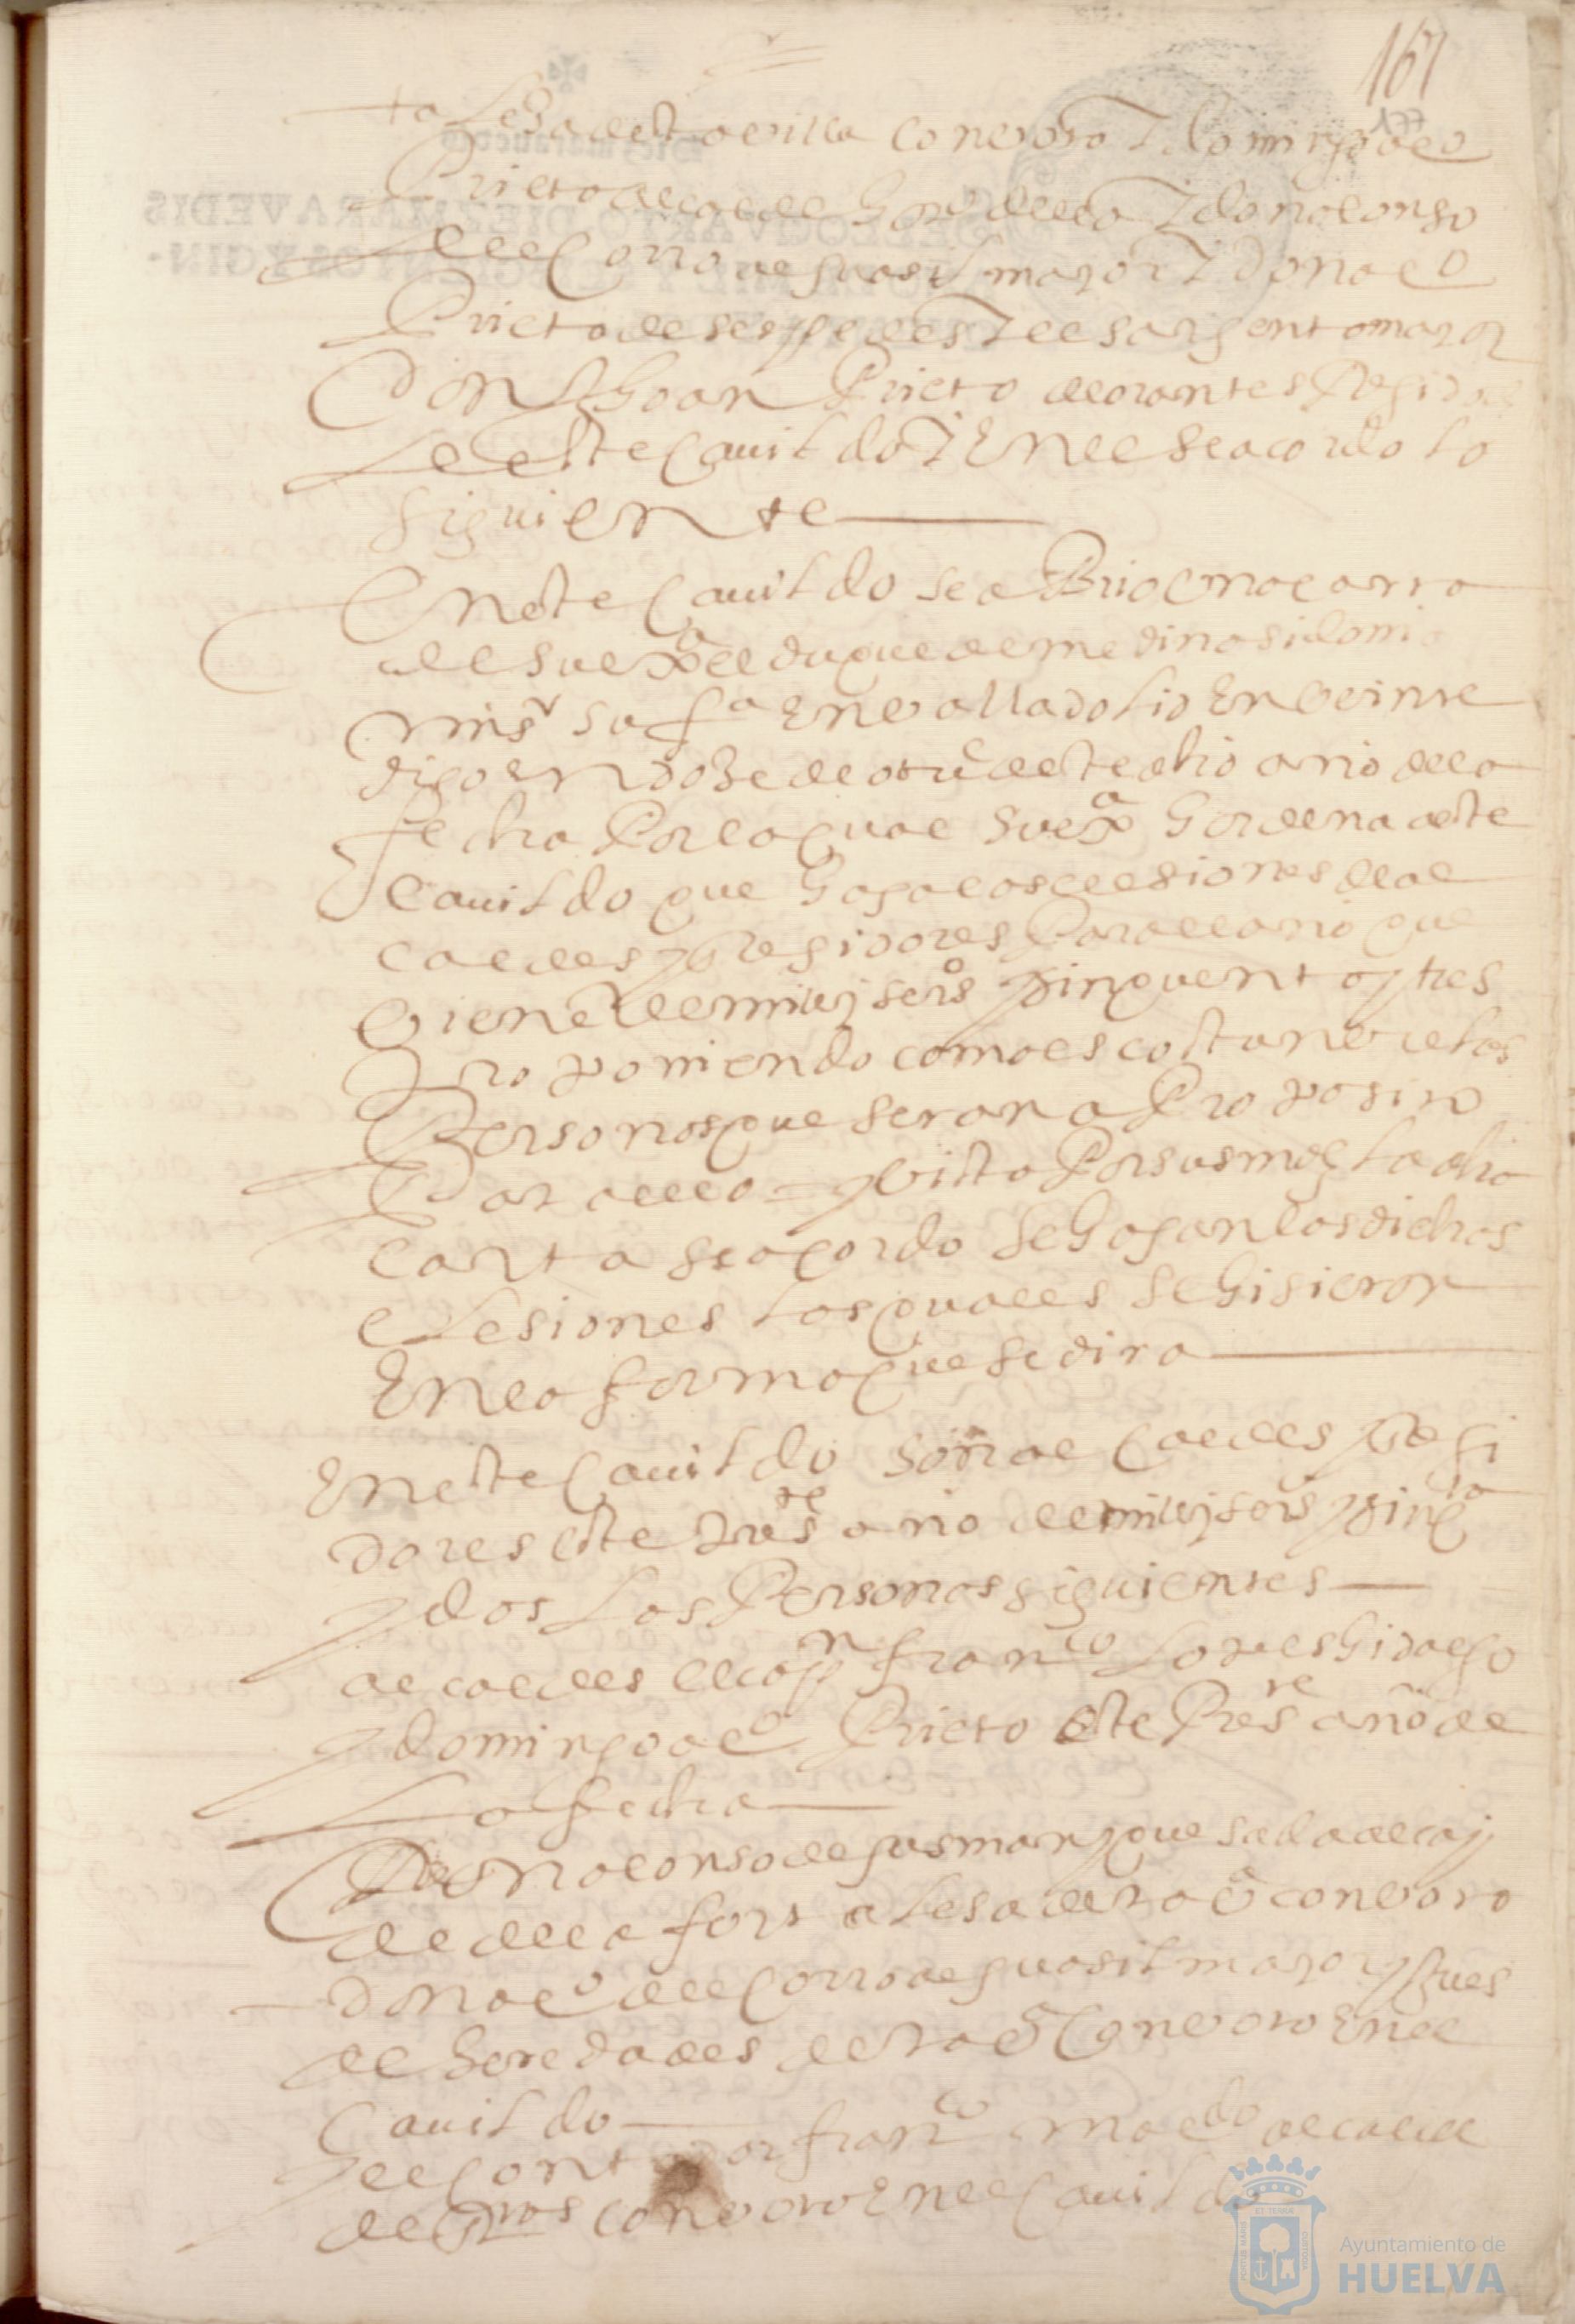 161
177
taleza desta villa con voto y domingo alº
Prieto alcalde hordº della y don alonso
del Corro alguasil mayor y don alº
Prieto de sespedes y el sargento mayor
Don Jhoan Prieto de orantes Regidor
de este Cauildo y En el se acordo lo
siguiente
En este Cauildo se abrio una carta
de su exª el duque de medina sidonia
mi sr su fª En valladolid En veinte
digo En dose de otue deste dho año de la
fecha Por la qual su exª hordena a este
cauildo que haga las elesiones de al
caldes y Regidores Para el año que
viene de mill y seisº y sinquenta y tres
proponiendo como es costunbre las
Personas que seran a Proposito
Para ello = y visto Por sus mds la dha
carta se acordo se hagan las dichas
elesiones las quales se hisieron
En la forma que se dira
En este Cauildo son alcaldes y Regi
dores este preste año de mill y seisº y sinqta
y dos las Personas siguientes
alcaldes el capn franco lopes hidalgo
y domingo alº Prieto este Preste año de
la fecha
Don alonso de gusman y quesada alcay
de de la fortalesa desta vª con voto
Don alº del Corro alguasil mayor y Jues
de heredades desta vª Con voto En el
Cauildo
y el Contador franco maldo alcalde
de con voto En el Cauildo
Ayuntamiento de
HUELVA